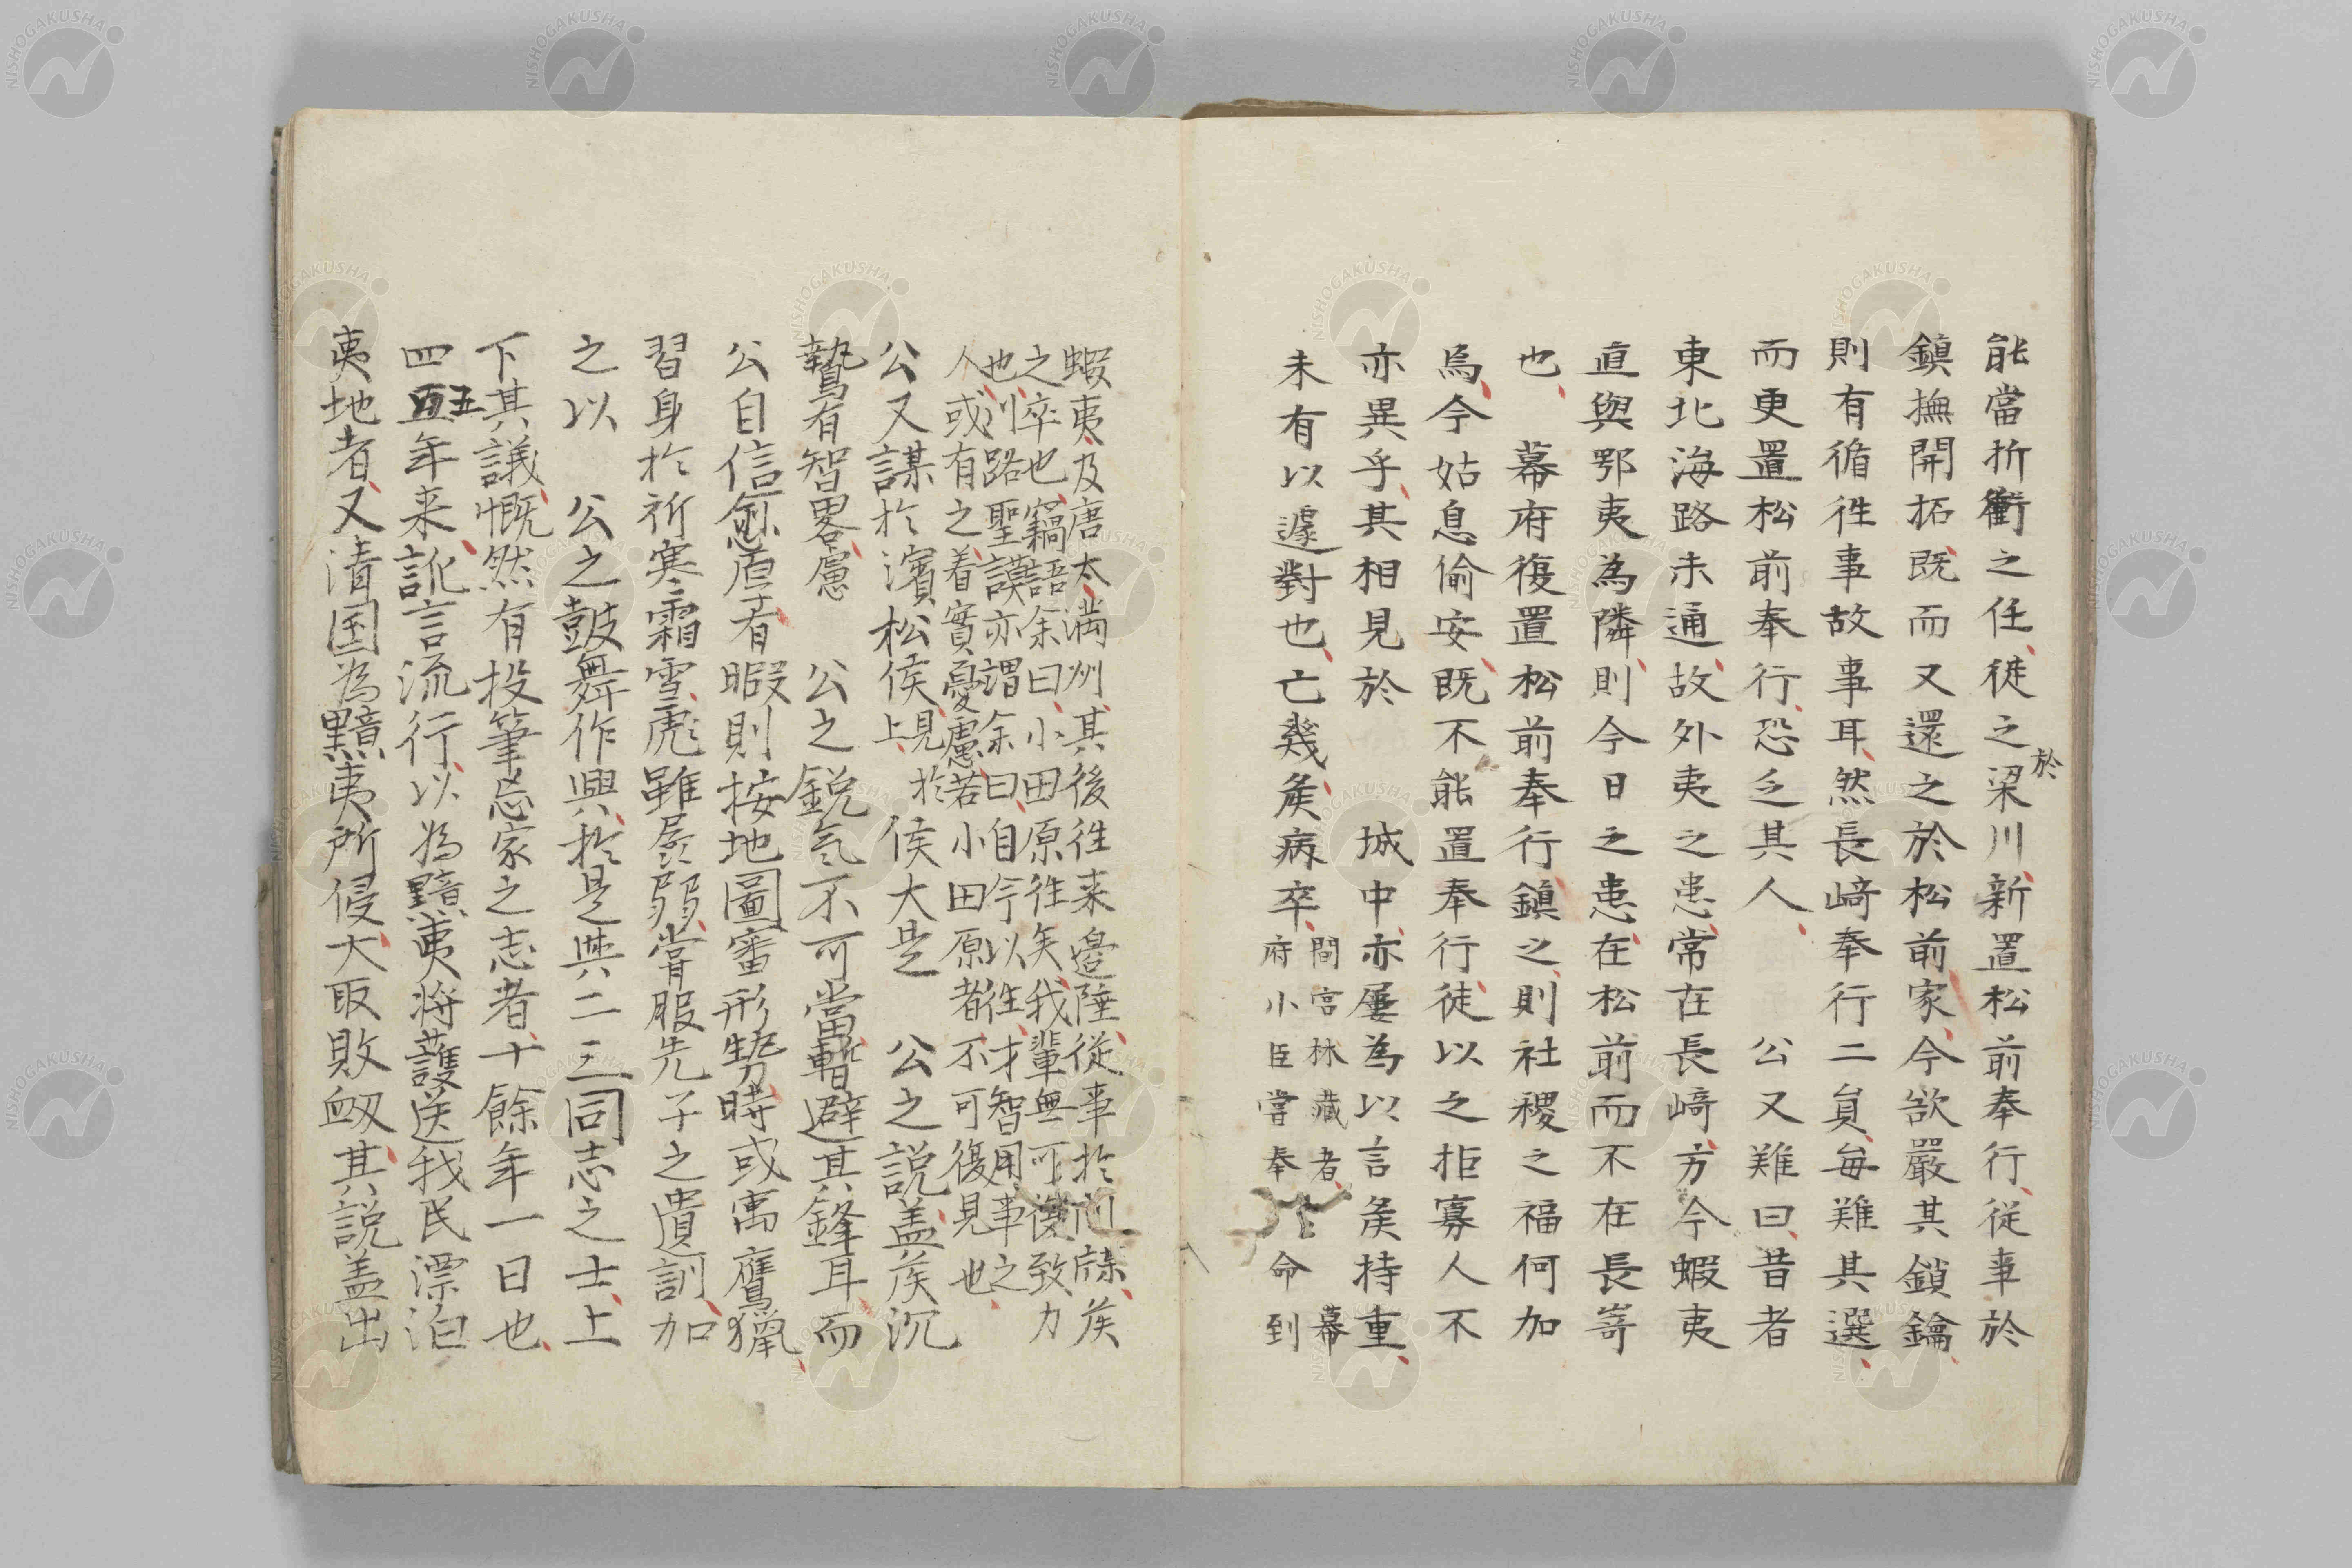 能當折衝之任、徙之於梁川、新置松前奉行、從事於
鎮撫開拓、既而又還之於松前家、今欲嚴其鎖鑰、
則有循徃事故事耳、然長﨑奉行二員、毎難其選、
而更置松前奉行、恐乏其人、　公又難曰、昔者
東北海路未通、故外夷之患、常在長﨑、方今蝦夷
直與鄂夷為隣、則今日之患、在松前而不在長嵜
也、　幕府復置松前奉行鎮之、則社稷之福何加
焉、今姑息偷安、既不能置奉行、徒以之拒寡人、不
亦異乎、其相見於　城中、亦屢為以言、矦持重、
未有以遽對也、亡幾矦病卒、
間宮林藏者、　幕
府小臣、嘗奉　命到
蝦夷、及唐太、満州、其後徃来邉陲、從事於
之卒也、竊語余曰、小田原徃矣、我輩無可復致力
也、川路聖謨亦謂余曰、自今以徃、才智用事之
人或有之、着實憂慮若小田原者、不可復見也
公又謀於濱松侯、見上於侯大是　公之説、盖矦沉
鷙有智畧、慮　公之鋭氣不可當、暫避其鋒耳、而
公自信愈厚、有暇則按地圖、審形㔟、時或寓鷹獵、
習身於祈寒霜雪、彪雖孱弱、嘗服先子之遺訓、加
之以　公之鼓舞作興、於是與二三同志之士、上
下其議、慨然有投筆忘家之志者、十餘年一日也、
四五年来、訛言流行、以為黠夷将護送我民漂泊
夷地者、又清国為黠夷所侵、大取敗衂、其説盖出
NISHOGAKUSHA